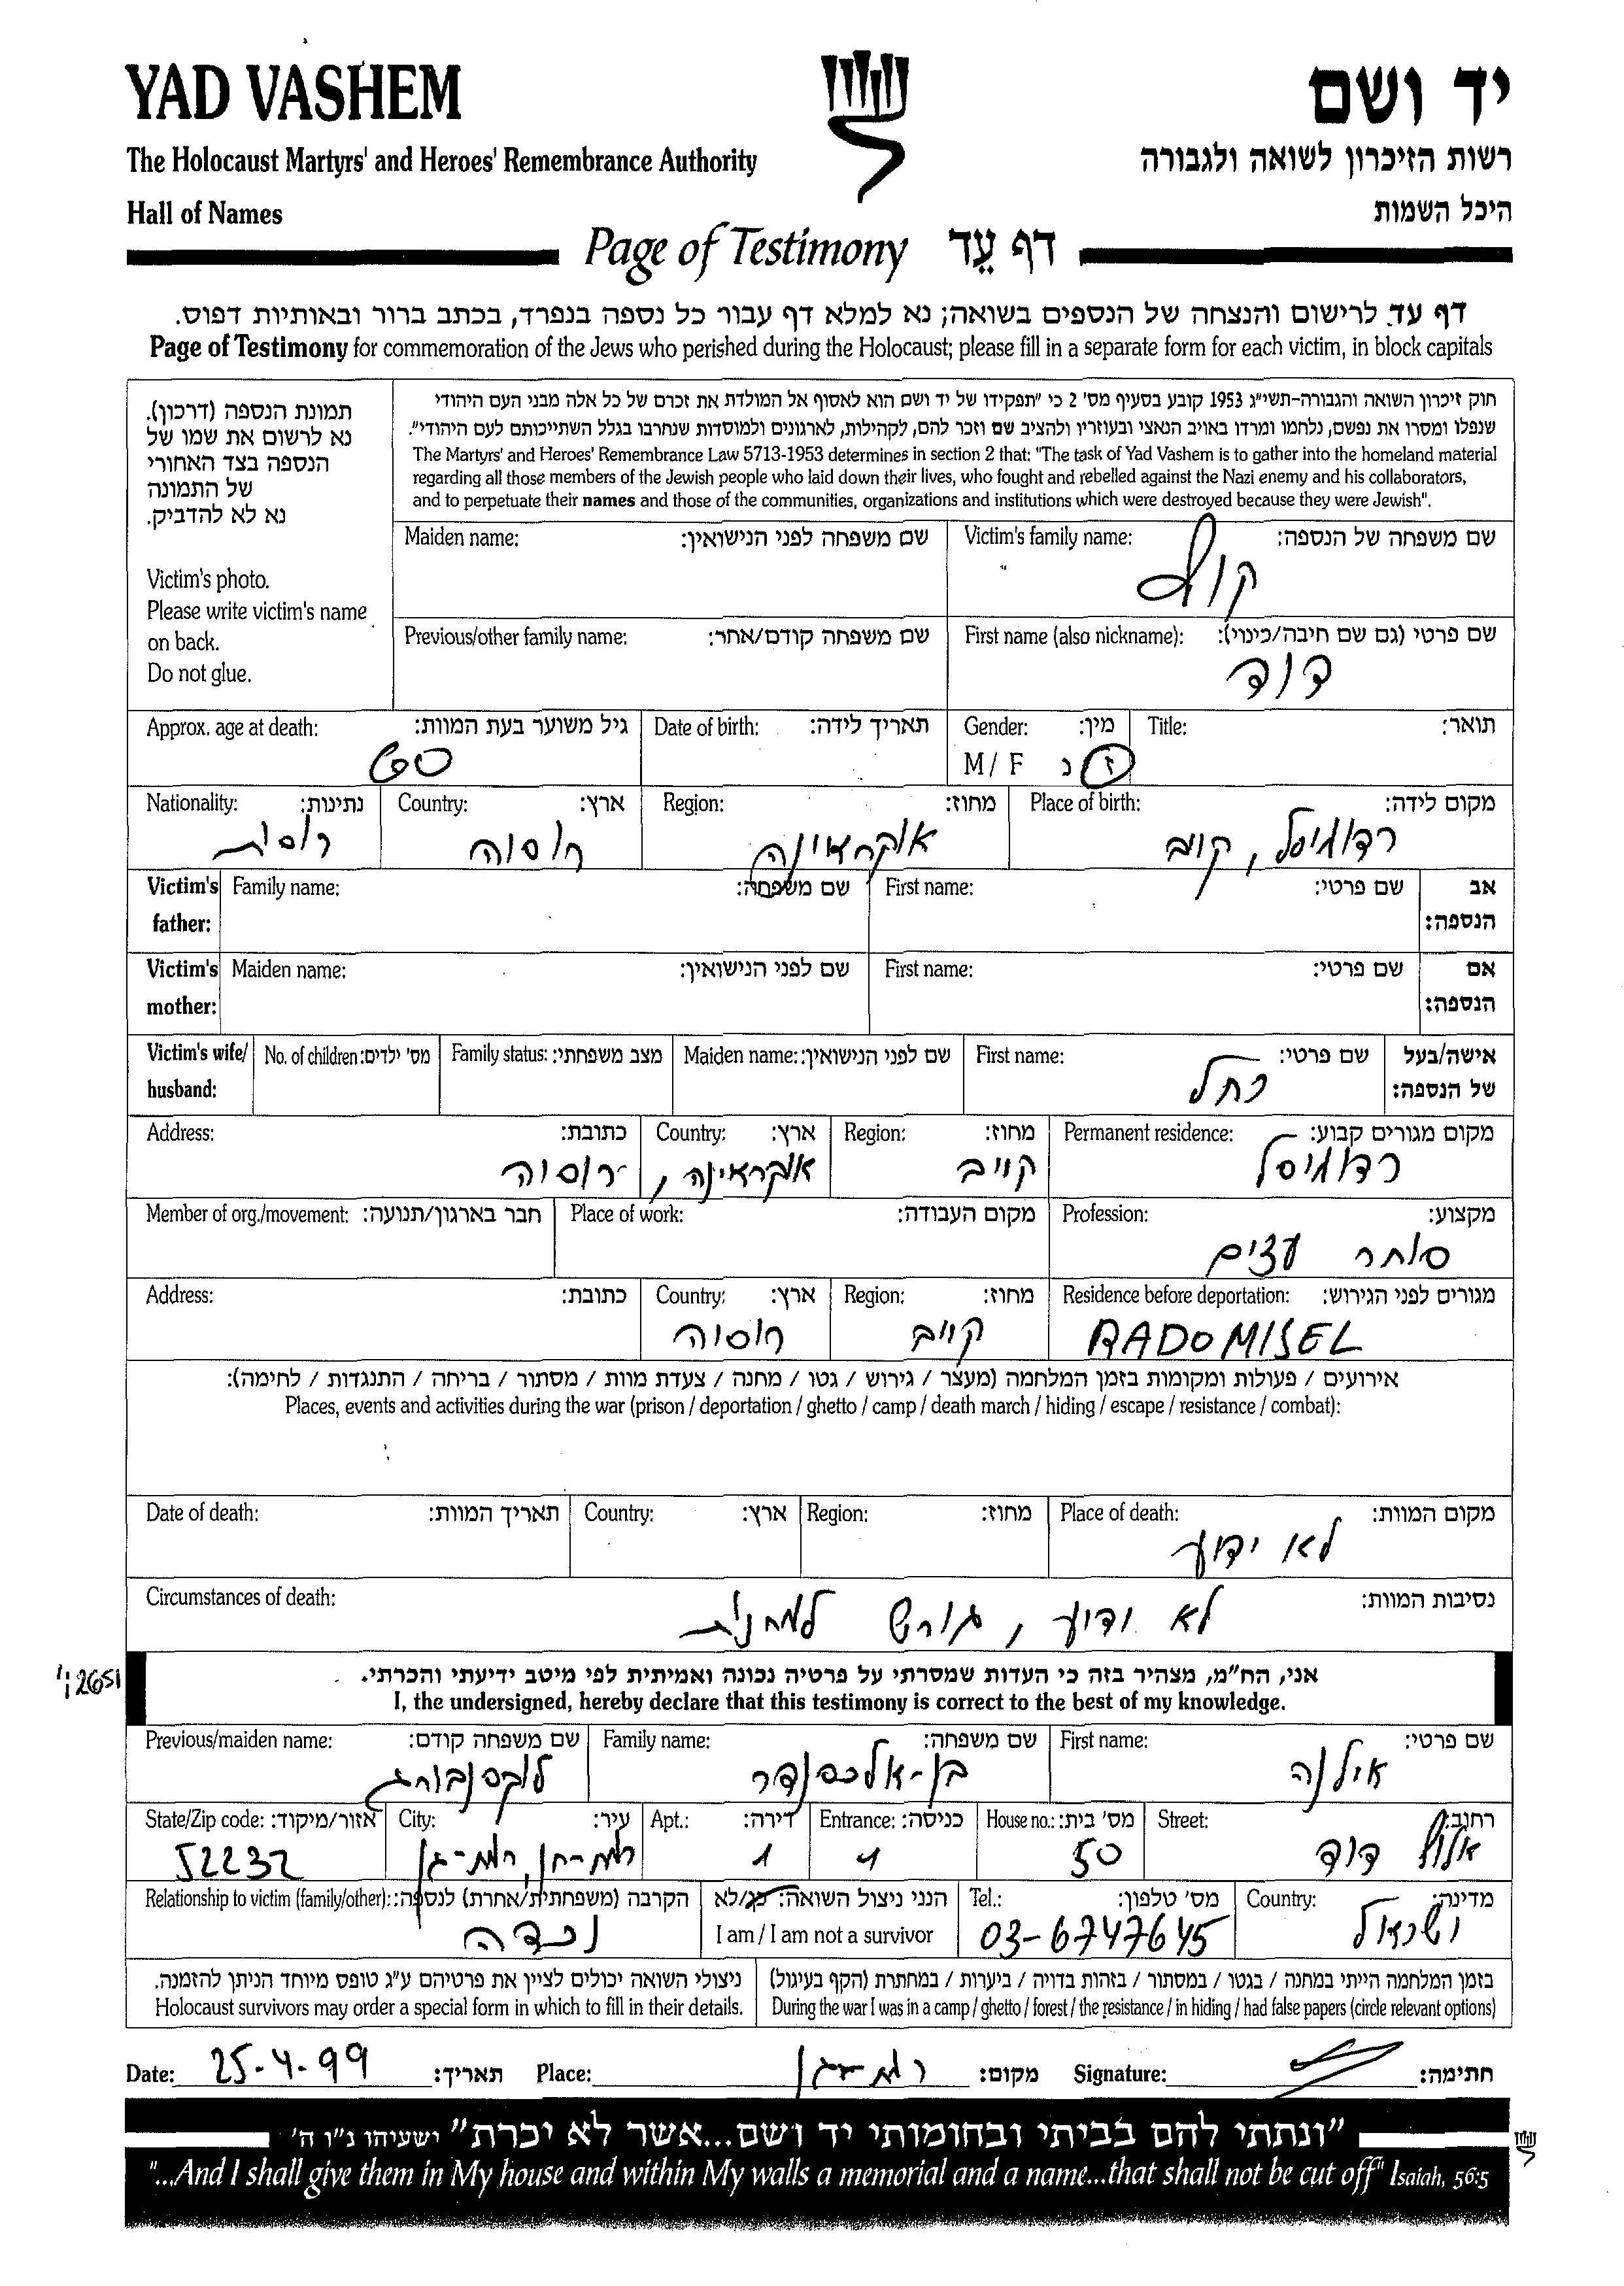 YAD VASHEM
יד ושם
The Holocaust Martyrs' and Heroes' Remembrance Authority
רשות הזיכרון לשואה ולגבורה
Hall of Names
היכל השמות
Page of Testimony דף עֵד
דף עד לרישום והנצחה של הנספים בשואה; נא למלא דף עבור כל נספה בנפרד, בכתב ברור ובאותיות דפוס.
Page of Testimony for commemoration of the Jews who perished during the Holocaust; please fill in a separate form for each victim, in block capitals
תמונת הנספה (דרכון).
נא לרשום את שמו של
הנספה בצד האחורי
של התמונה
נא לא להדביק.
Victim's photo.
Please write victim's name
on back.
Do not glue.
חוק זיכרון השואה והגבורה-תשי״ג 1953 קובע בסעיף מס' 2 כי ״תפקידו של יד ושם הוא לאסוף אל המולדת את זכרם של כל אלה מבני העם היהודי
שנפלו ומסרו את נפשם, נלחמו ומרדו באויב הנאצי ובעוזריו ולהציב שם וזכר להם, לקהילות, לארגונים ולמוסדות שנחרבו בגלל השתייכותם לעם היהודי״.
The Martyrs' and Heroes' Remembrance Law 5713-1953 determines in section 2 that: "The task of Yad Vashem is to gather into the homeland material
regarding all those members of the Jewish people who laid down their lives, who fought and rebelled against the Nazi enemy and his collaborators,
and to perpetuate their names and those of the communities, organizations and institutions which were destroyed because they were Jewish".
Maiden name: שם משפחה לפני הנישואין: Victim's family name: שם משפחה של הנספה:
Previous/other family name: שם משפחה קודם/אחר: First name (also nickname): שם פרטי (גם שם חיבה/כינוי):
דוד
Approx. age at death: גיל משוער בעת המוות: Date of birth: תאריך לידה: Gender: מין: Title: תואר:
60 M / F ז נ
Nationality: נתינות: Country: ארץ: Region: מחוז: Place of birth: מקום לידה:
רוסית רוסיה אוקראינה רדומיסל, קויב
Victim's father: Family name: שם משפחה: First name: שם פרטי: אב הנספה:
Victim's mother: Maiden name: שם לפני הנישואין: First name: שם פרטי: אם הנספה:
Victim's wife/ husband: No. of children: מס' ילדים: Family status: מצב משפחתי: Maiden name: שם לפני הנישואין: First name: שם פרטי: אישה/בעל של הנספה:
רחל
Address: כתובת: Country: ארץ: Region: מחוז: Permanent residence: מקום מגורים קבוע:
אוקראינה, רוסיה קייב רדומיסל
Member of org./movement: חבר בארגון/תנועה: Place of work: מקום העבודה: Profession: מקצוע:
סוחר עצים
Address: כתובת: Country: ארץ: Region: מחוז: Residence before deportation: מגורים לפני הגירוש:
רוסיה קייב RADOMISEL
אירועים / פעולות ומקומות בזמן המלחמה (מעצר / גירוש / גטו / מחנה / צעדת מוות / מסתור / בריחה / התנגדות / לחימה):
Places, events and activities during the war (prison / deportation / ghetto / camp / death march / hiding / escape / resistance / combat):
Date of death: תאריך המוות: Country: ארץ: Region: מחוז: Place of death: מקום המוות:
לא ידוע
Circumstances of death: נסיבות המוות:
לא ידוע, גורש למחנות
אני, הח״מ, מצהיר בזה כי העדות שמסרתי על פרטיה נכונה ואמיתית לפי מיטב ידיעתי והכרתי.
I, the undersigned, hereby declare that this testimony is correct to the best of my knowledge.
Previous/maiden name: שם משפחה קודם: Family name: שם משפחה: First name: שם פרטי:
לוקסנבורג בן-אלכסנדר אילנה
State/Zip code: אזור/מיקוד: City: עיר: Apt.: דירה: Entrance: כניסה: House no.: מס' בית: Street: רחוב:
52232 רמת-חן, רמת-גן 1 50 אלוף דוד
Relationship to victim (family/other): הקרבה (משפחתית/אחרת) לנספה: הנני ניצול השואה: כן/לא Tel.: מס' טלפון: Country: מדינה:
נכדה I am / I am not a survivor 03-6747645 ישראל
ניצולי השואה יכולים לציין את פרטיהם ע״ג טופס מיוחד הניתן להזמנה. בזמן המלחמה הייתי במחנה / בגטו / במסתור / בזהות בדויה / ביערות / במחתרת (הקף בעיגול)
Holocaust survivors may order a special form in which to fill in their details. During the war I was in a camp / ghetto / forest / the resistance / in hiding / had false papers (circle relevant options)
Date: 25-4-99 תאריך: Place: רמת-גן מקום: Signature: חתימה:
״ונתתי להם בביתי ובחומותי יד ושם...אשר לא יכרת״ ישעיהו נ״ו ה'
"...And I shall give them in My house and within My walls a memorial and a name...that shall not be cut off" Isaiah, 56:5